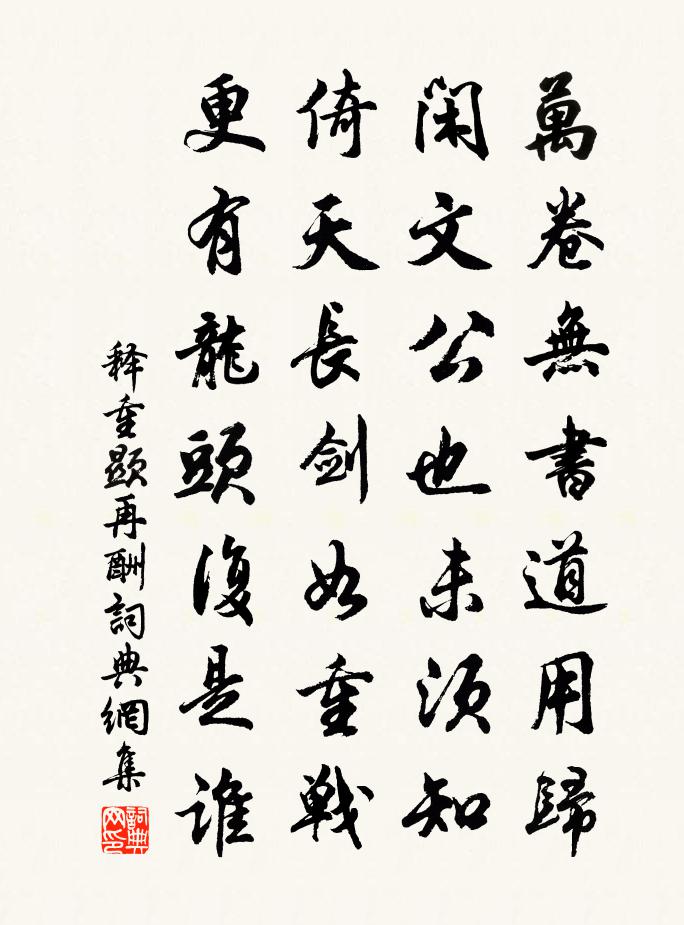 萬卷無書道用歸
閑文公也未須知
倚天長劍如重戰
更有龍頭復是誰
释重顯再酬詞典網集
詞典网印